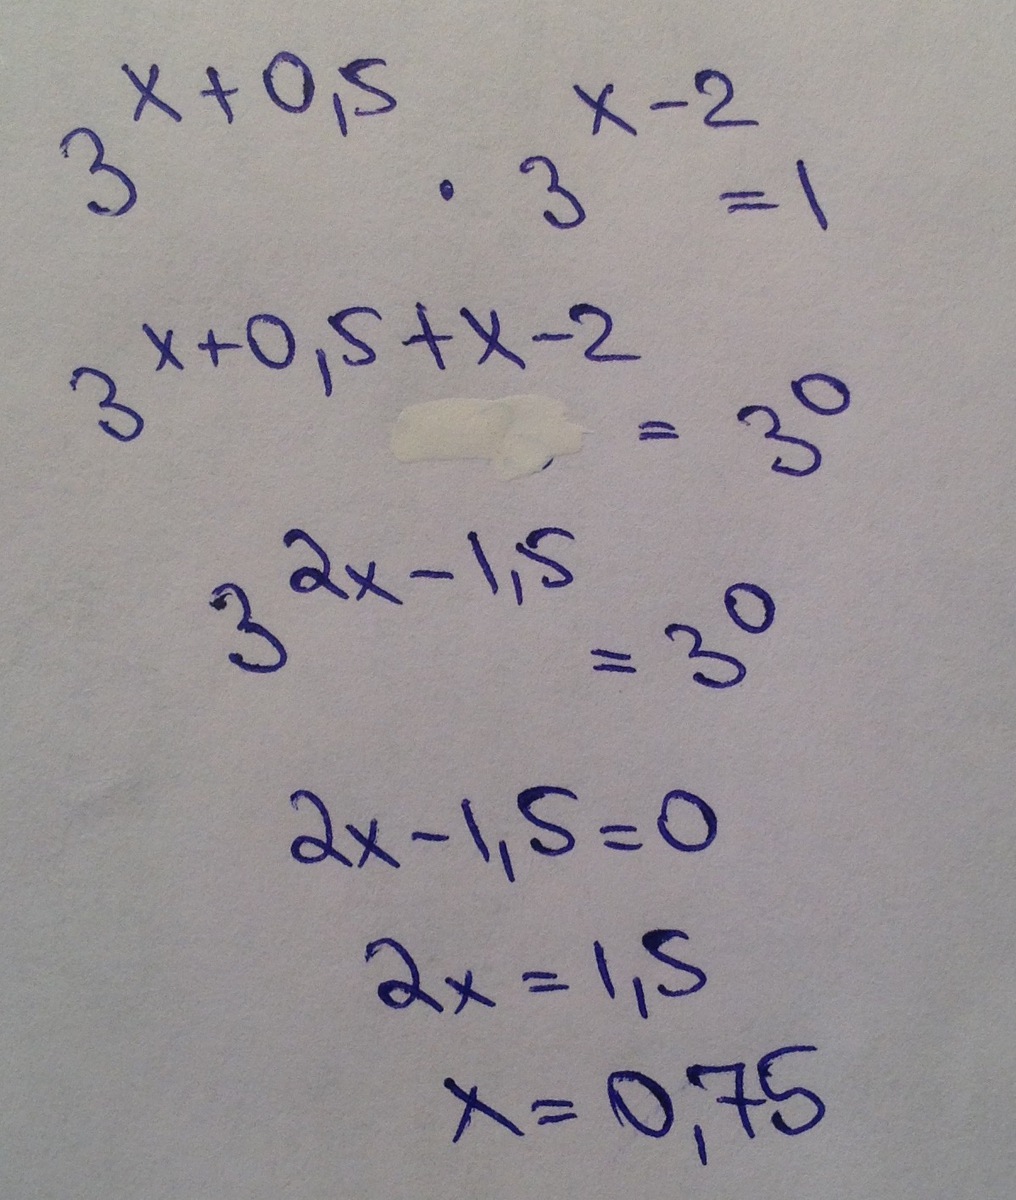 3^{x+0,5} · 3^{x-2} = 1
3^{x+0,5+x-2} = 3^0
3^{2x-1,5} = 3^0
2x-1,5=0
2x=1,5
x=0,75